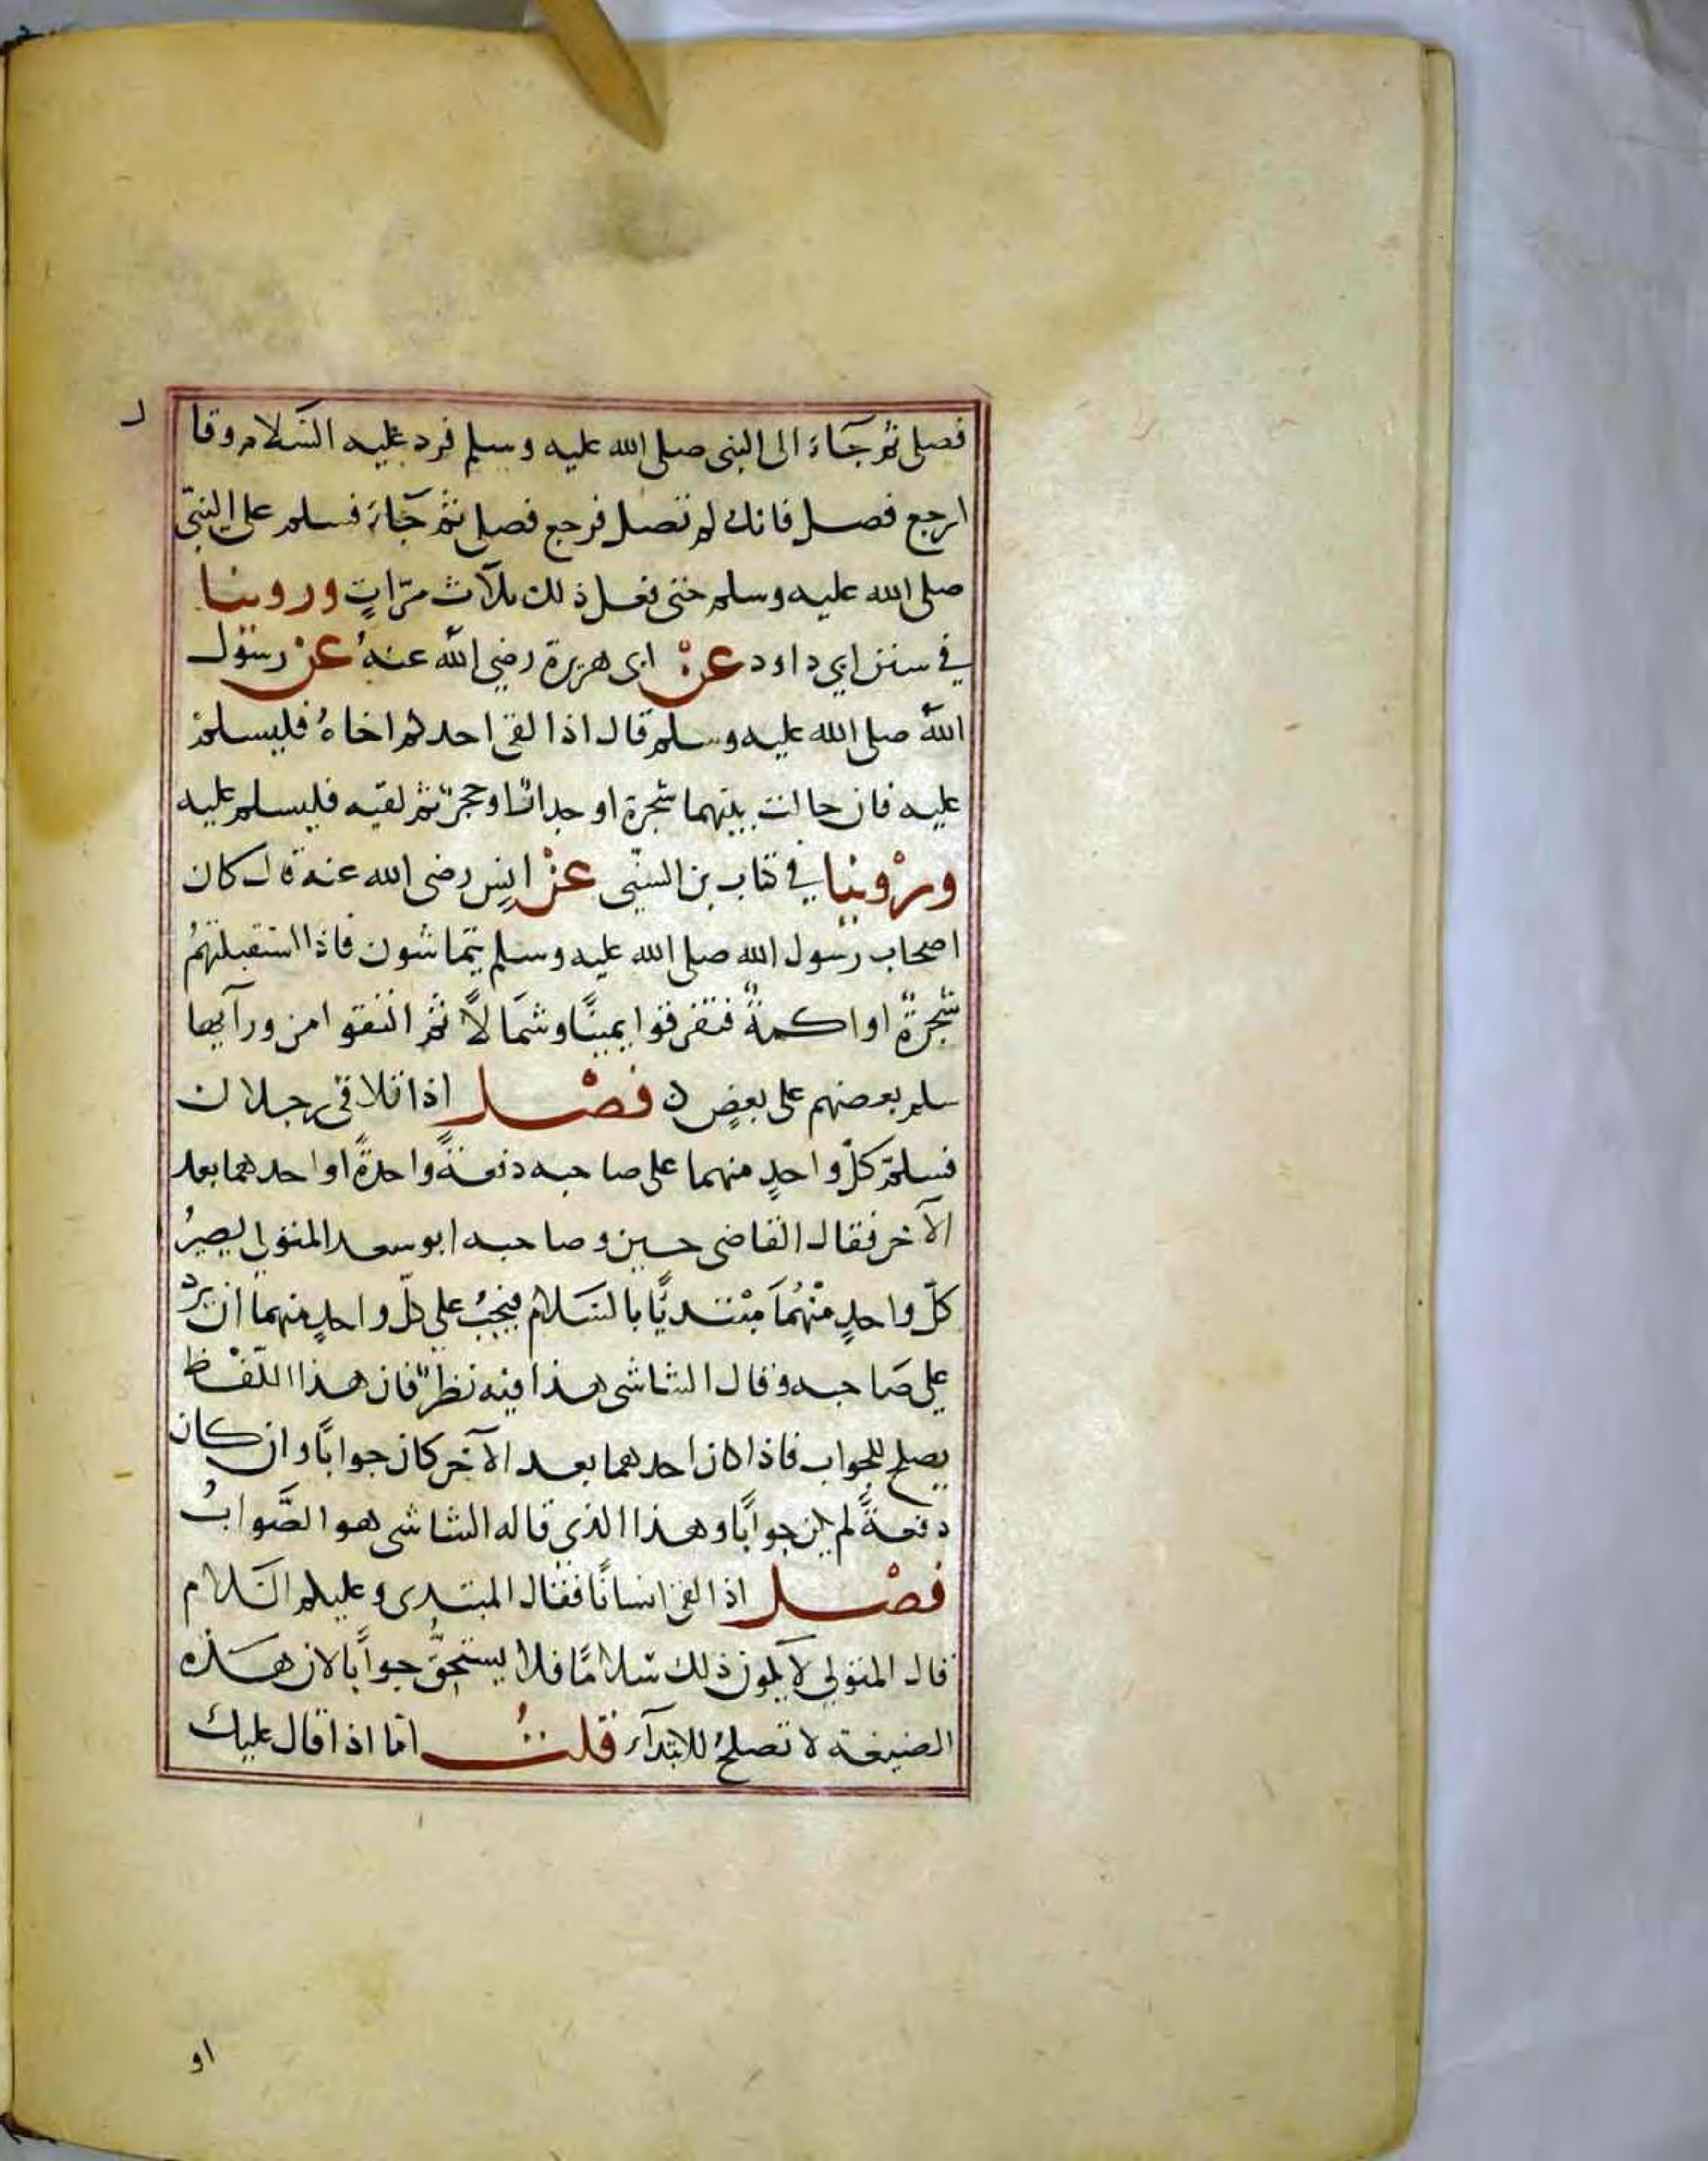 فصلى ثم جاء الى النبى صلى الله عليه وسلم فرد عليه السلام وقال
ارجع فصل فانك لم تصل فرجع فصلى ثم جاء فسلم على النبيّ
صلى الله عليه وسلم حتى فعل ذلك ثلاث مرّاتٍ وروينا
في سنن ابي داود عن ابى هريرة رضي الله عنهُ عن رسول
اللهِ صلى الله عليه وسلم قال اذا لقى احدكم اخاهُ فليسلم
عليه فان حالت بينهما شجرة او جدار او حجر ثم لقيه فليسلم عليه
ورُوينا في كتاب بن السنّى عنْ انسٍ رضى الله عنه قال كان
اصحاب رسول الله صلى الله عليه وسلم يتماشون فاذا استقبلتهمُ
شجرةٌ او اكمةٌ فتفرقوا يمينًا وشمالًا ثم التقوا من ورآيها
سلم بعضهم على بعضٍ ن فصْل اذا تلاقى رجلان
فسلم كلّ واحدٍ منهما على صاحبه دفعةً واحدةً او احدهما بعد
الآخر فقال القاضى حسين وصاحبه ابو سعد المتولي يصيرُ
كلّ واحدٍ منْهُمَا مبْتديًا بالسَلام فيجبُ علي كلّ واحدٍ منهما ان يردّ
علي صَاحبه وقال الشاشى هذا فيه نظرٌ فان هذا اللّفْظ
يصلح للجواب فاذا كان احدهما بعد الآخر كان جوابًا وان كان
دفعةً لم يكن جوابًا وهذا الذى قاله الشاشى هو الصَّوابُ
فصْل اذا لقى انسانًا فقال المبتدى وعليكم السَلام
قال المتولي لا يكون ذلك سَلامًا فلا يستحقُّ جوابًا لان هذه
الصيغة لا تصلحُ للابتدآء قلتُ امّا اذا قال عليك
او